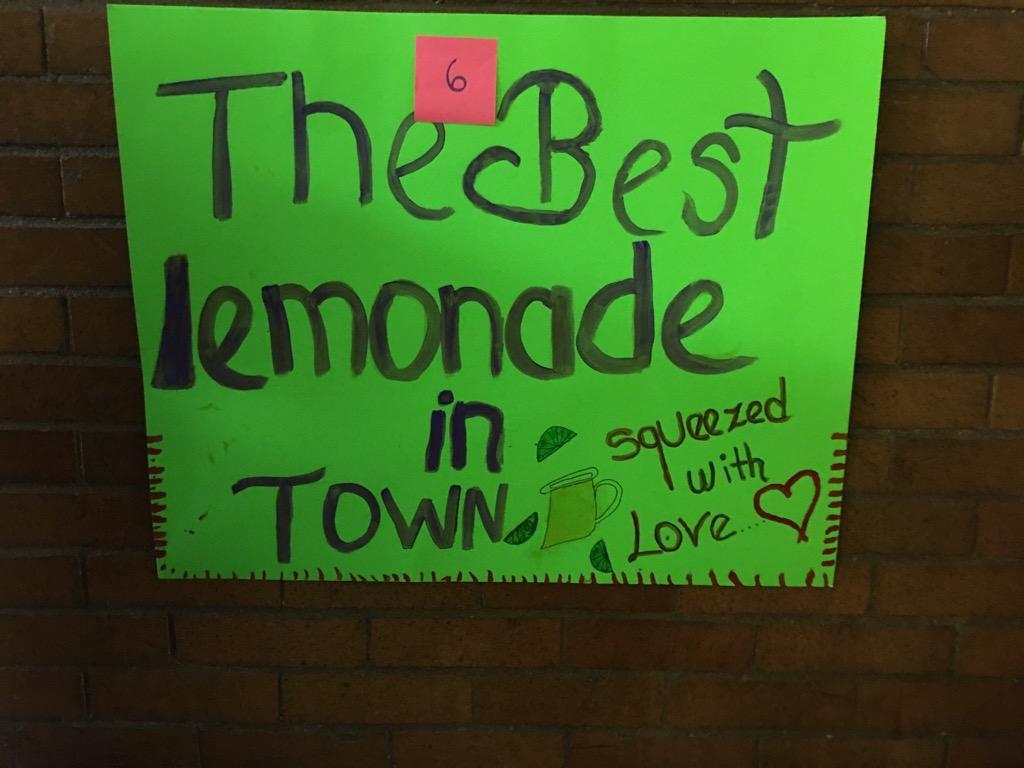 6
The Best
lemonade
in
TOWN
squeezed
with
Love.....